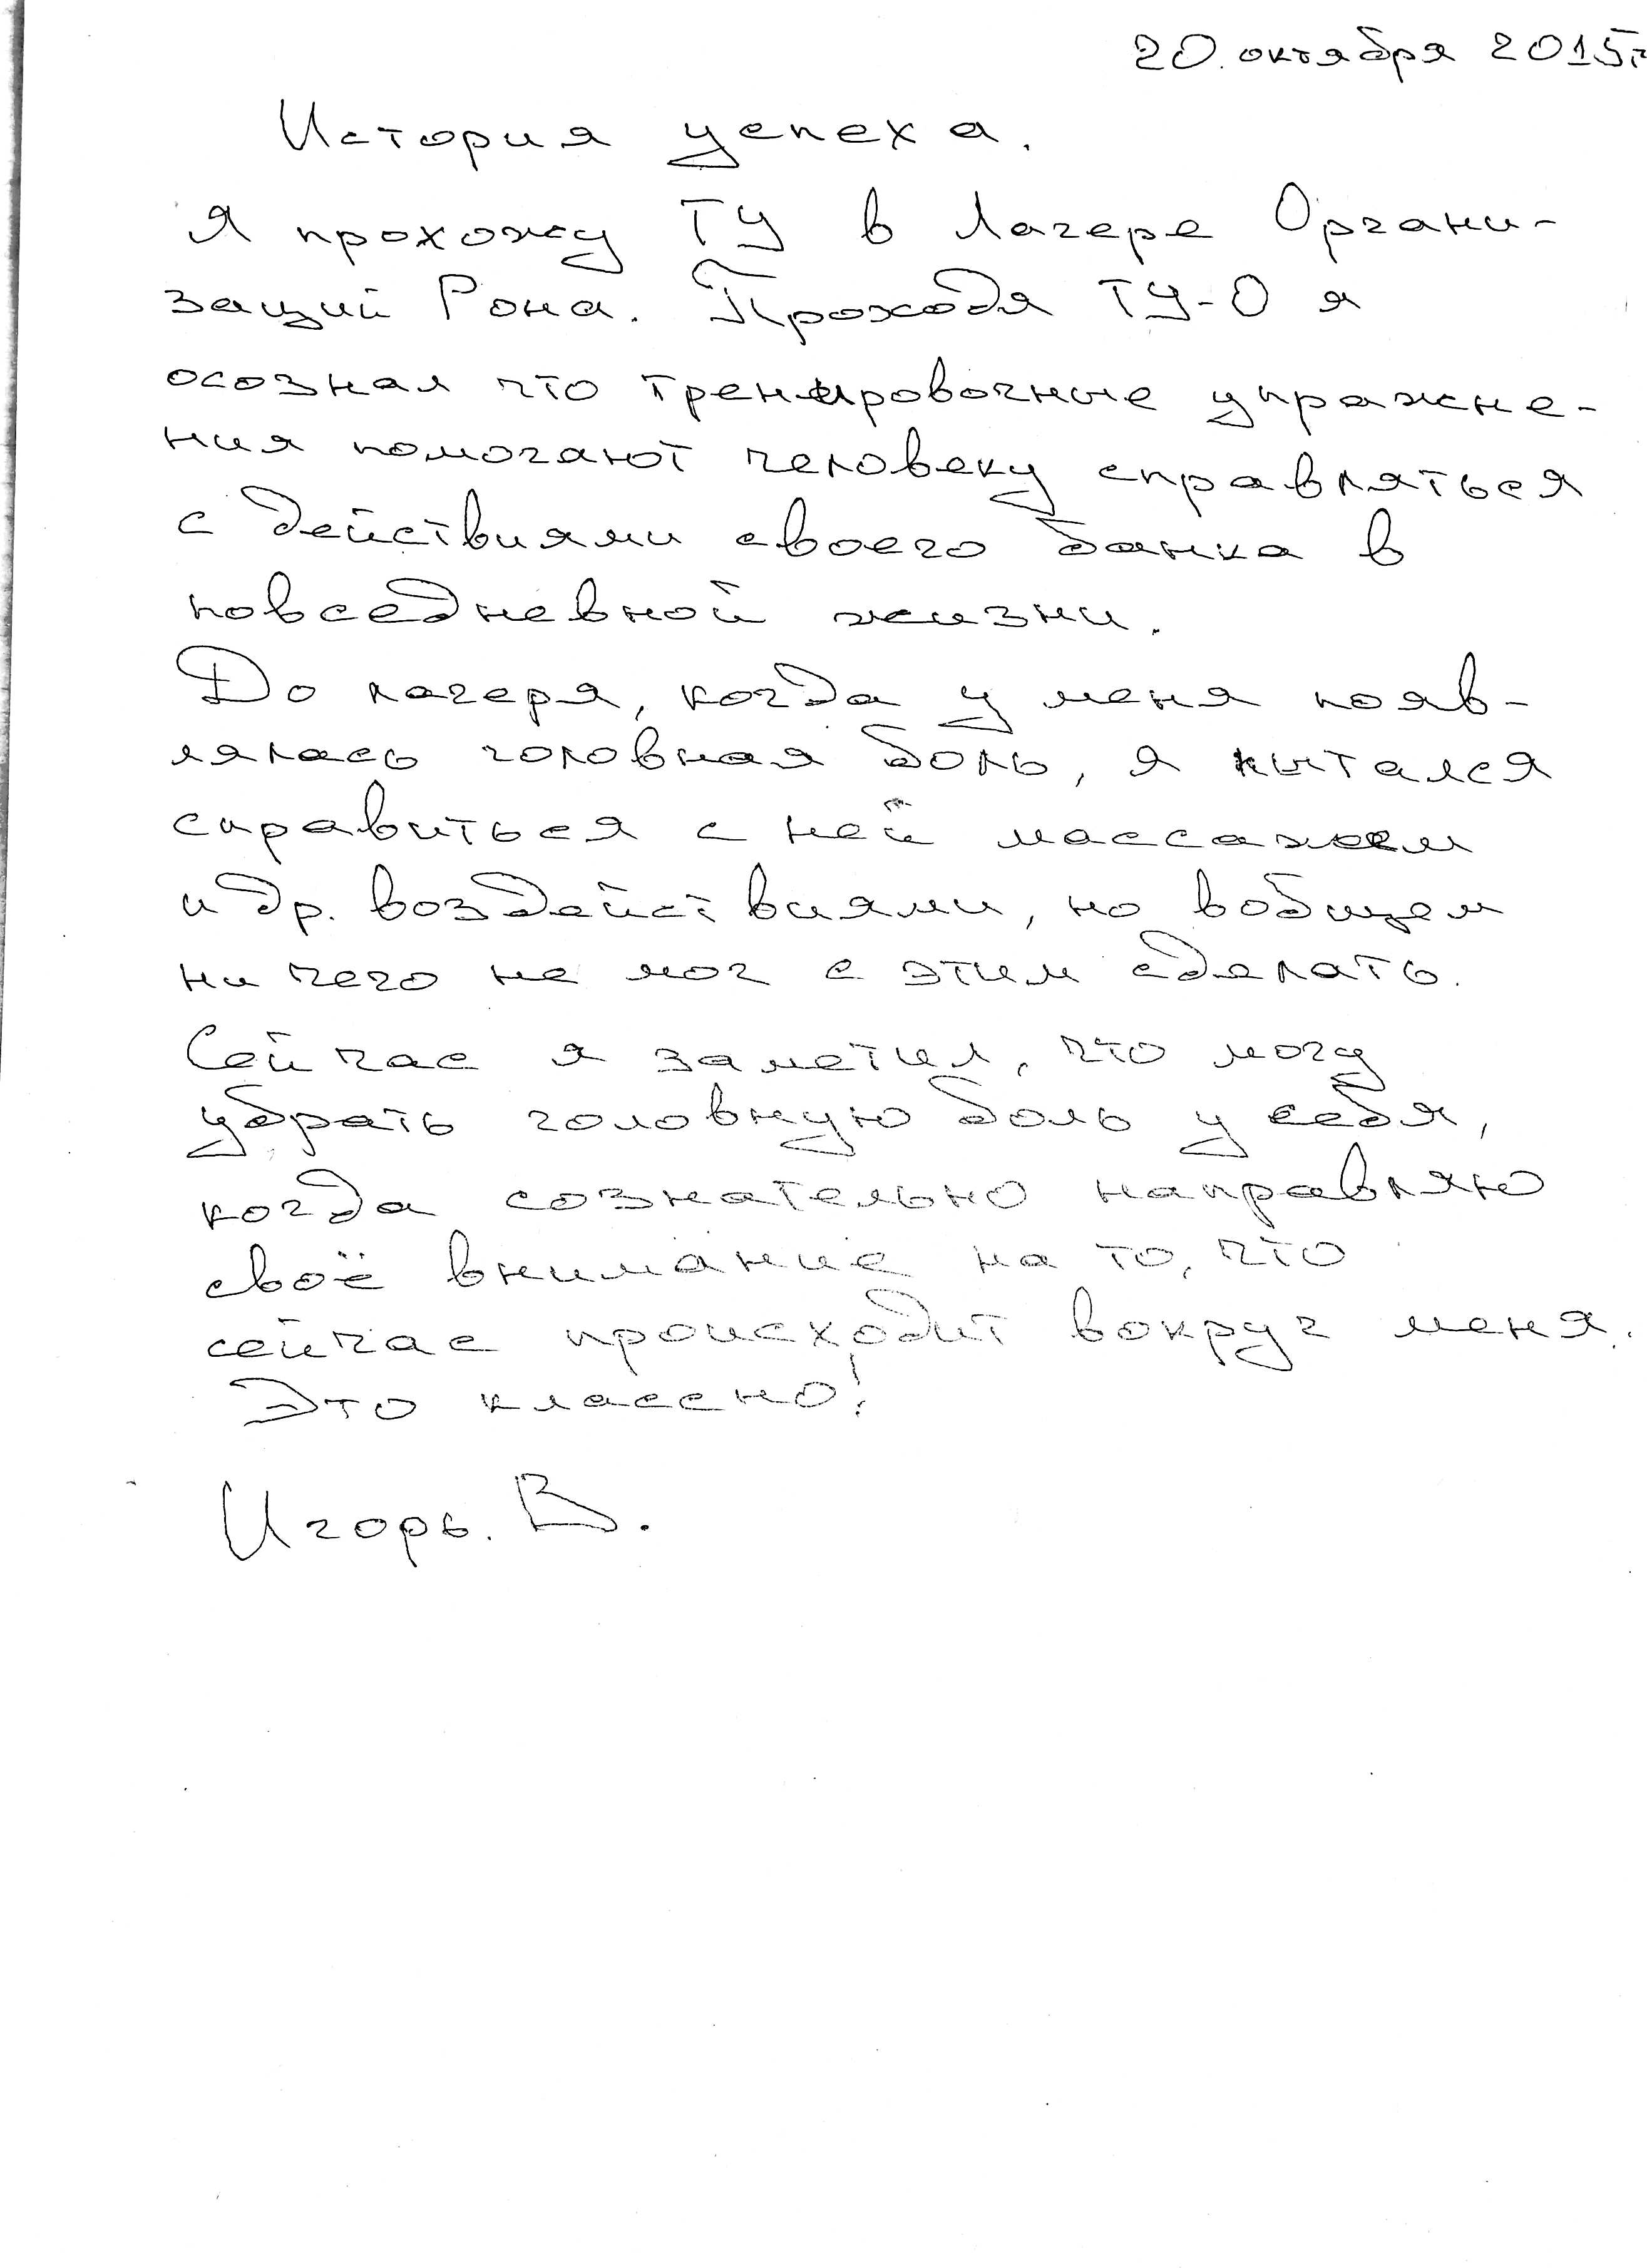 20. октября 2015г
История успеха.
Я прохожу ТУ в Лагере Органи-
заций Рона. Проходя ТУ-0 я
осознал что тренировочные упражне-
ния помогают человеку справляться
с действиями своего банка в
повседневной жизни.
До лагеря, когда у меня появ-
лялась головная боль, я пытался
справиться с ней массажем
и др. воздействиями, но вобщем
ничего не мог с этим сделать.
Сейчас я заметил, что могу
убрать головную боль у себя,
когда сознательно направляю
своё внимание на то, что
сейчас происходит вокруг меня.
Это классно!
Игорь. В.